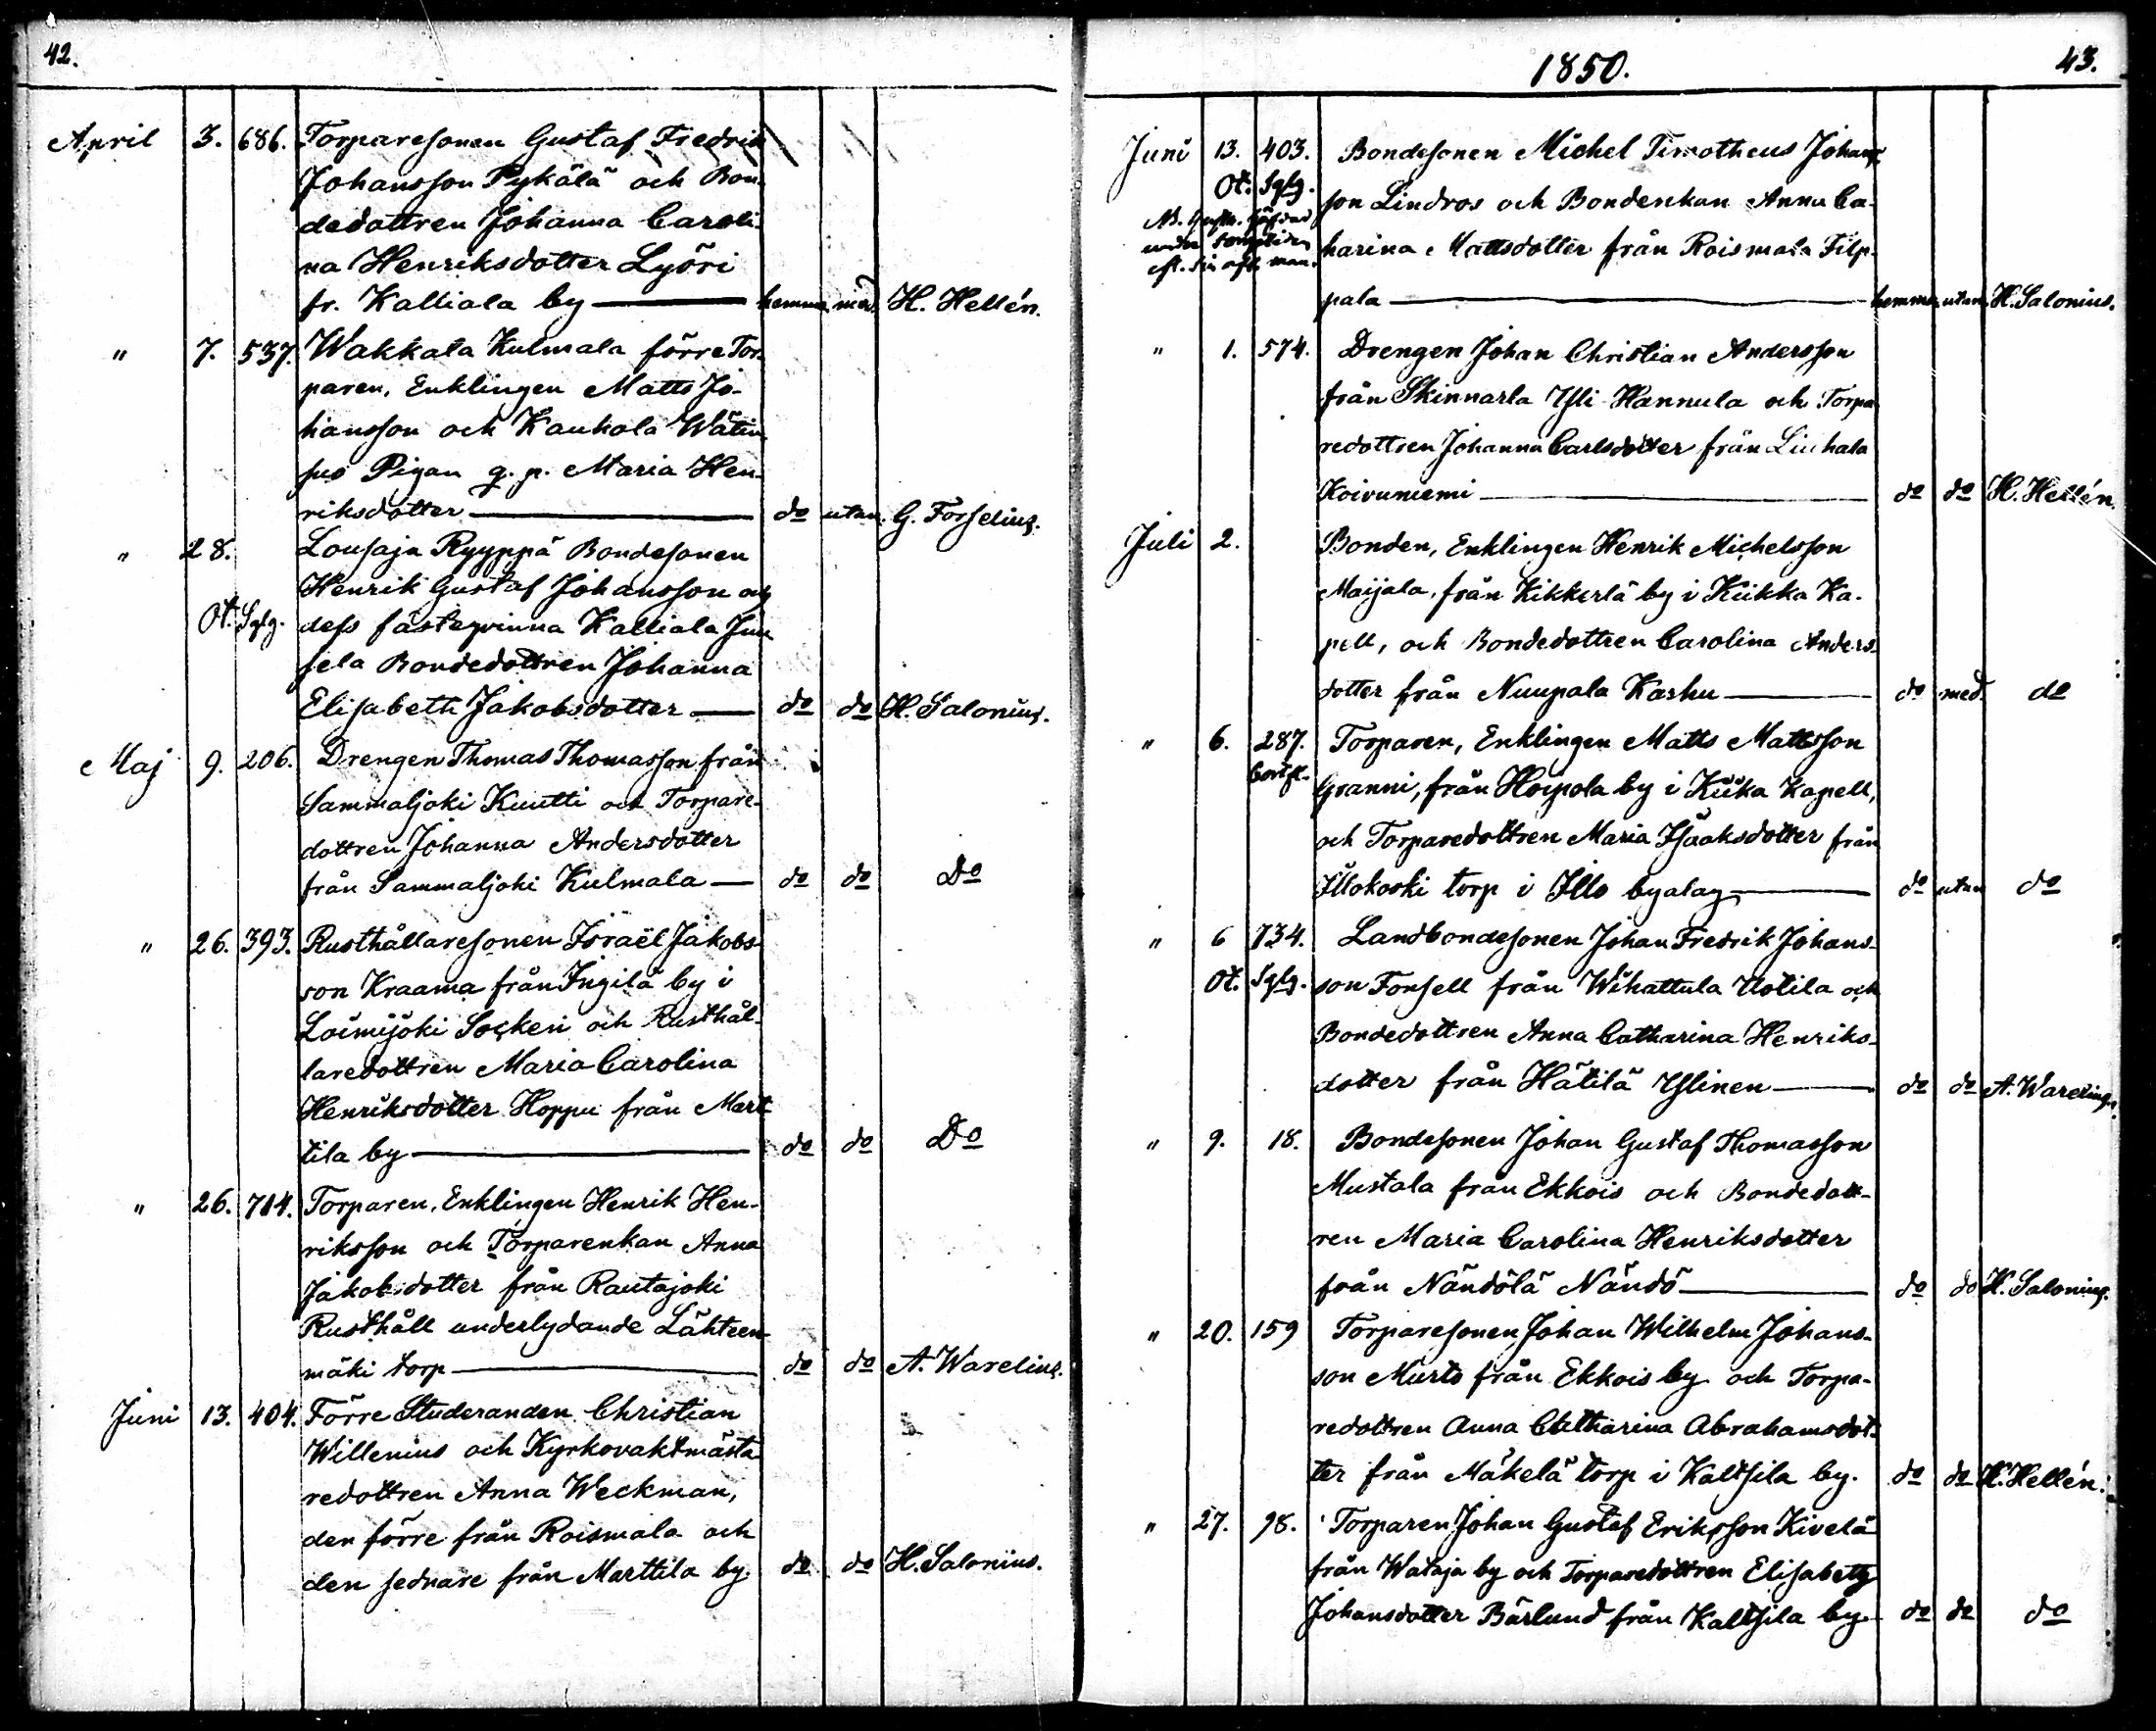 42.
April 3. 686. Torparesonen Gustaf Fredrik
Johansson Pykälä och Bon-
dedottren Johanna Caroli-
na Henriksdotter Lyöri
fr. Kalliala by — hemma med. H. Hellén.
" 7. 537. Wakkala Kulmala förre Tor-
paren, Enklingen Matts Jo-
hansson och Kaukola Wätin-
pus Pigan g. p. Maria Hen-
riksdotter — do utan. G. Forselius.
" 28. Lousaja Ryyppä Bondesonen
Henrik Gustaf Johansson och
Ot. Sglg. dess fästeqvinna Kalliala Jun
sela Bondedottren Johanna
Elisabeth Jakobsdotter — do do H. Salonius.
Maj 9. 206. Drengen Thomas Thomasson från
Sammaljoki Kuutti och Torpare-
dottren Johanna Andersdotter
från Sammaljoki Kulmala — do do Do
" 26. 393. Rusthållaresonen Israël Jakobs-
son Kraama från Ingilä by i
Loimijoki Socken och Rusthål-
laredottren Maria Carolina
Henriksdotter Hoppu från Mart-
tila by — do do Do
" 26. 714. Torparen, Enklingen Henrik Hen-
riksson och Torparenkan Anna
Jakobsdotter från Rautajoki
Rusthåll underlydande Lähteen-
mäki torp — do do A. Warelius.
Juni 13. 404. Förre Studeranden Christian
Willenius och Kyrkovaktmästa-
redottren Anna Weckman,
den förre från Roismala och
den sednare från Marttila by. do do H. Salonius.
1850. 43.
Juni 13. 403. Bondesonen Michel Timotheus Johans-
Ot. Sglg. son Lindros och Bondenkan Anna Ca-
harina Mattsdotter från Roismala Filp-
eft. sin afl. man.
pala — hemma utan. H. Salonius.
" 1. 574. Drengen Johan Christian Andersson
från Skinnarla Yli-Hannula och Torpa-
redottren Johanna Carlsdotter från Liuhala
Koivuniemi — do do H. Hellén.
Juli 2. Bonden, Enklingen Henrik Michelsson
Maijala, från Kikkerlä by i Kiikka Ka-
pell, och Bondedottren Carolina Anders-
dotter från Nuupala Karhu — do med. do
" 6. 287. Torparen, Enklingen Matts Mattsson
Granni, från Hoipola by i Kiika Kapell,
och Torparedottren Maria Isaaksdotter från
Illokoski torp i Illo byalag — do utan do
" 6 734. Landbondesonen Johan Fredrik Johans-
Ot. Sglg. son Fonsell från Wihattula Uotila och
Bondedottren Anna Catharina Henriks-
dotter från Hätilä Ylinen — do do A. Warelius.
" 9. 18. Bondesonen Johan Gustaf Thomasson
Mustala från Ekkois och Bondedott-
ren Maria Carolina Henriksdotter
från Nändölä Nändö — do do H. Salonius.
" 20. 159 Torparesonen Johan Wilhelm Johans-
son Murto från Ekkois by och Torpa-
redottren Anna Catharina Abrahamsdot-
ter från Mäkelä torp i Kaltsila by. do do H. Hellén.
" 27. 98. Torparen Johan Gustaf Eriksson Kivelä
från Wataja by och Torparedottren Elisabeth
Johansdotter Bärlund från Kaltsila by. do do do